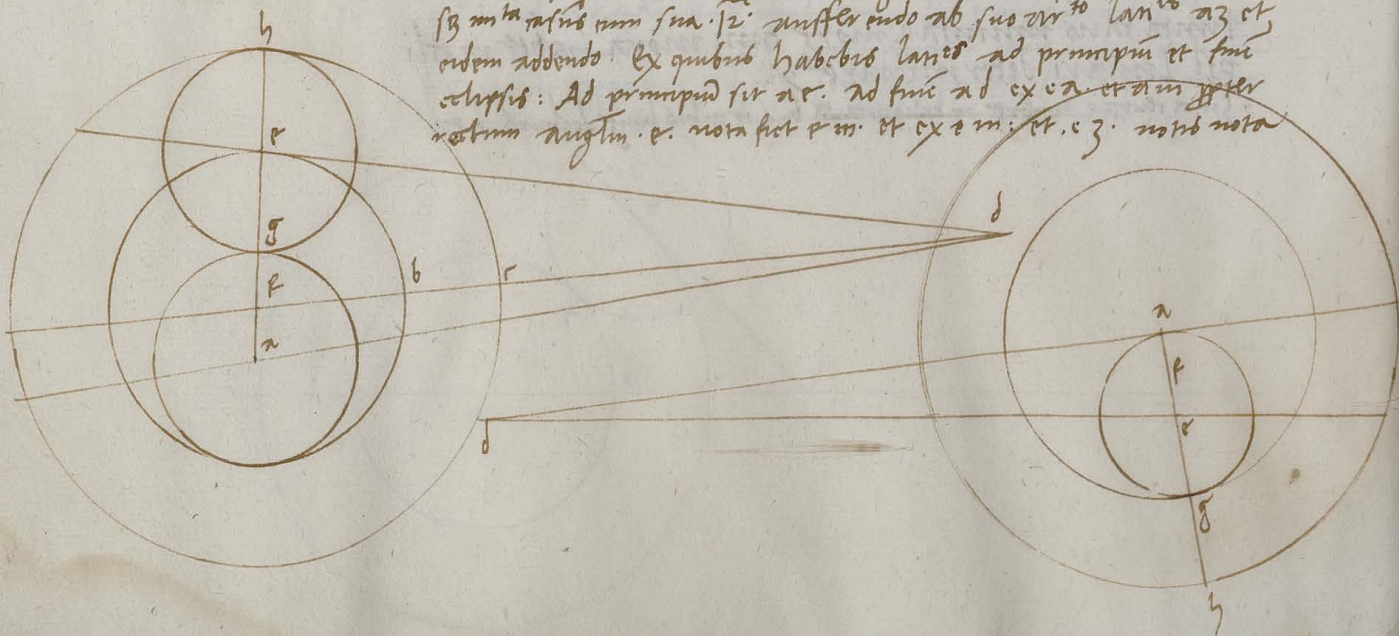 casus cum sua aufferendo ab suo et
eidem addendo. Ex quibus habebis lati^es ad principiū et finē
eclipsis: Ad principiū sit a c. ad finē a d ex e a. et a m ꝓpter
rectum angl̄m . e. nota fiet e m. et ex e m: et . e z. notis nota
h
e
g
f
a
b
c
d
d
a
f
e
g
h